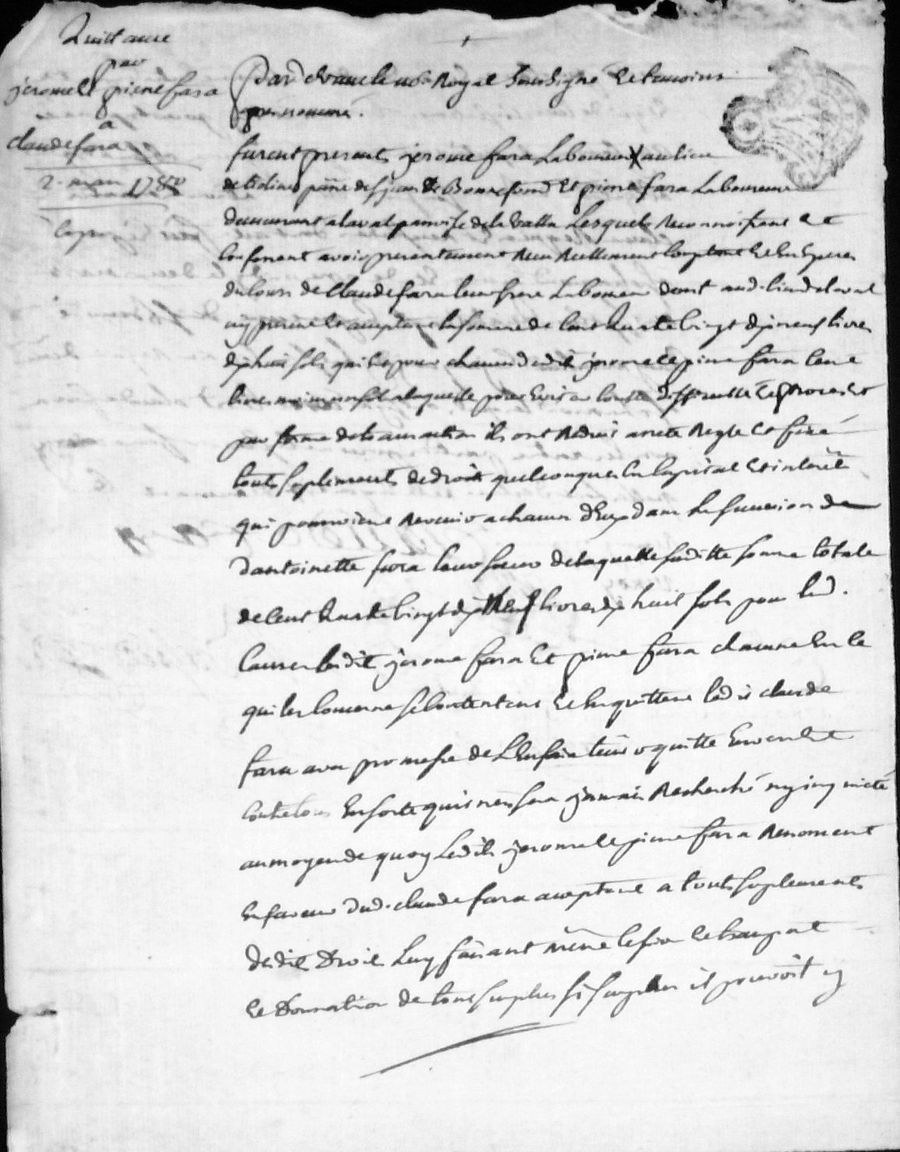 Quittance
par
jerome et pierre fara
a
claude fara
2. mars
Copie
Pardevant le no.re Royal soussigné et temoins
furent presents jerome fara Laboureur au lieu
par.sse de St jean de Bonnefond Et pierre fara Laboureur
demeurant a laval parroisse de la Valla Lesquels Reconnoissent et
confessent avoir presentement Receu Reellement comptant et en Especes
du cours de Claude fara leur frere Laboureur dud. lieu de laval
icy present et acceptant la somme de cent quatre vingt dix neuf livres
dix huit sols qui est pour chacun desdits jerome et pierre fara
livres moins un sol a laquelle pour Eviter toute difficulté et proces et
par forme de transaction ils ont Reduit arreté Reglé et fixé
touts suplements de droits quelconques En capital Et interets
qui pourroient Revenir a chacun d'Eux dans la succession de
d'antoinette fara leur soeur de laquelle susditte somme totale
de cent quatre vingt dix Neuf livres dix huit sols pour led.
lesdits jerome fara Et pierre fara chacun En ce
qui les concerne se contentent et En quittent ledit claude
fara avec promesse de L'En faire tenir quitte Envers et
contre tous En sorte qu'il n'en sera jamais Recherché ny inquieté
au moyen de quoy Lesdits jerome et pierre fara Renoncent
En faveur dud. claude fara acceptant a touts suplements
desdits Droits Luy faisant même cession
et Donnation de tout surplus si surplus il pouvoit y